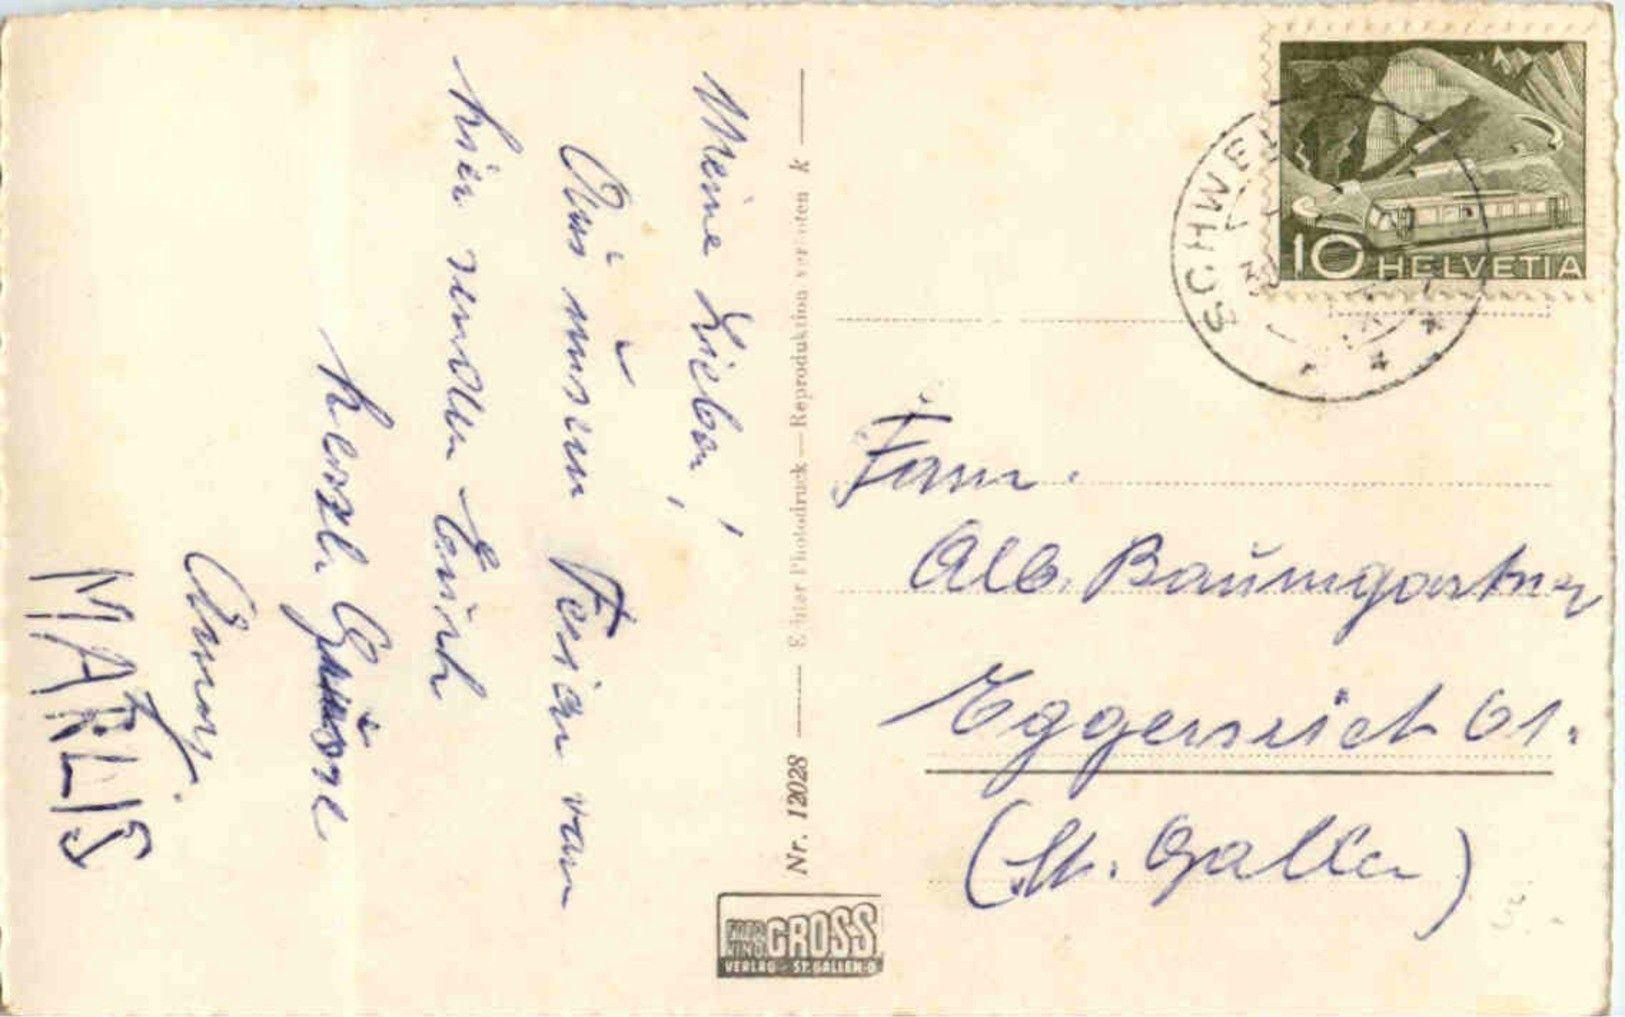 Meine Lieben!
Aus unsern Ferien von
hier senden Euch
herzl. Grüsse
Anny.
MARLIS
Nr. 12028 — Echter Photodruck — Reproduktion verboten k
GROSS
VERLAG - ST. GALLEN-O
SCHWE
10 HELVETIA
Fam.
Alb. Baumgartner
Eggersriet 61.
(St. Gallen)